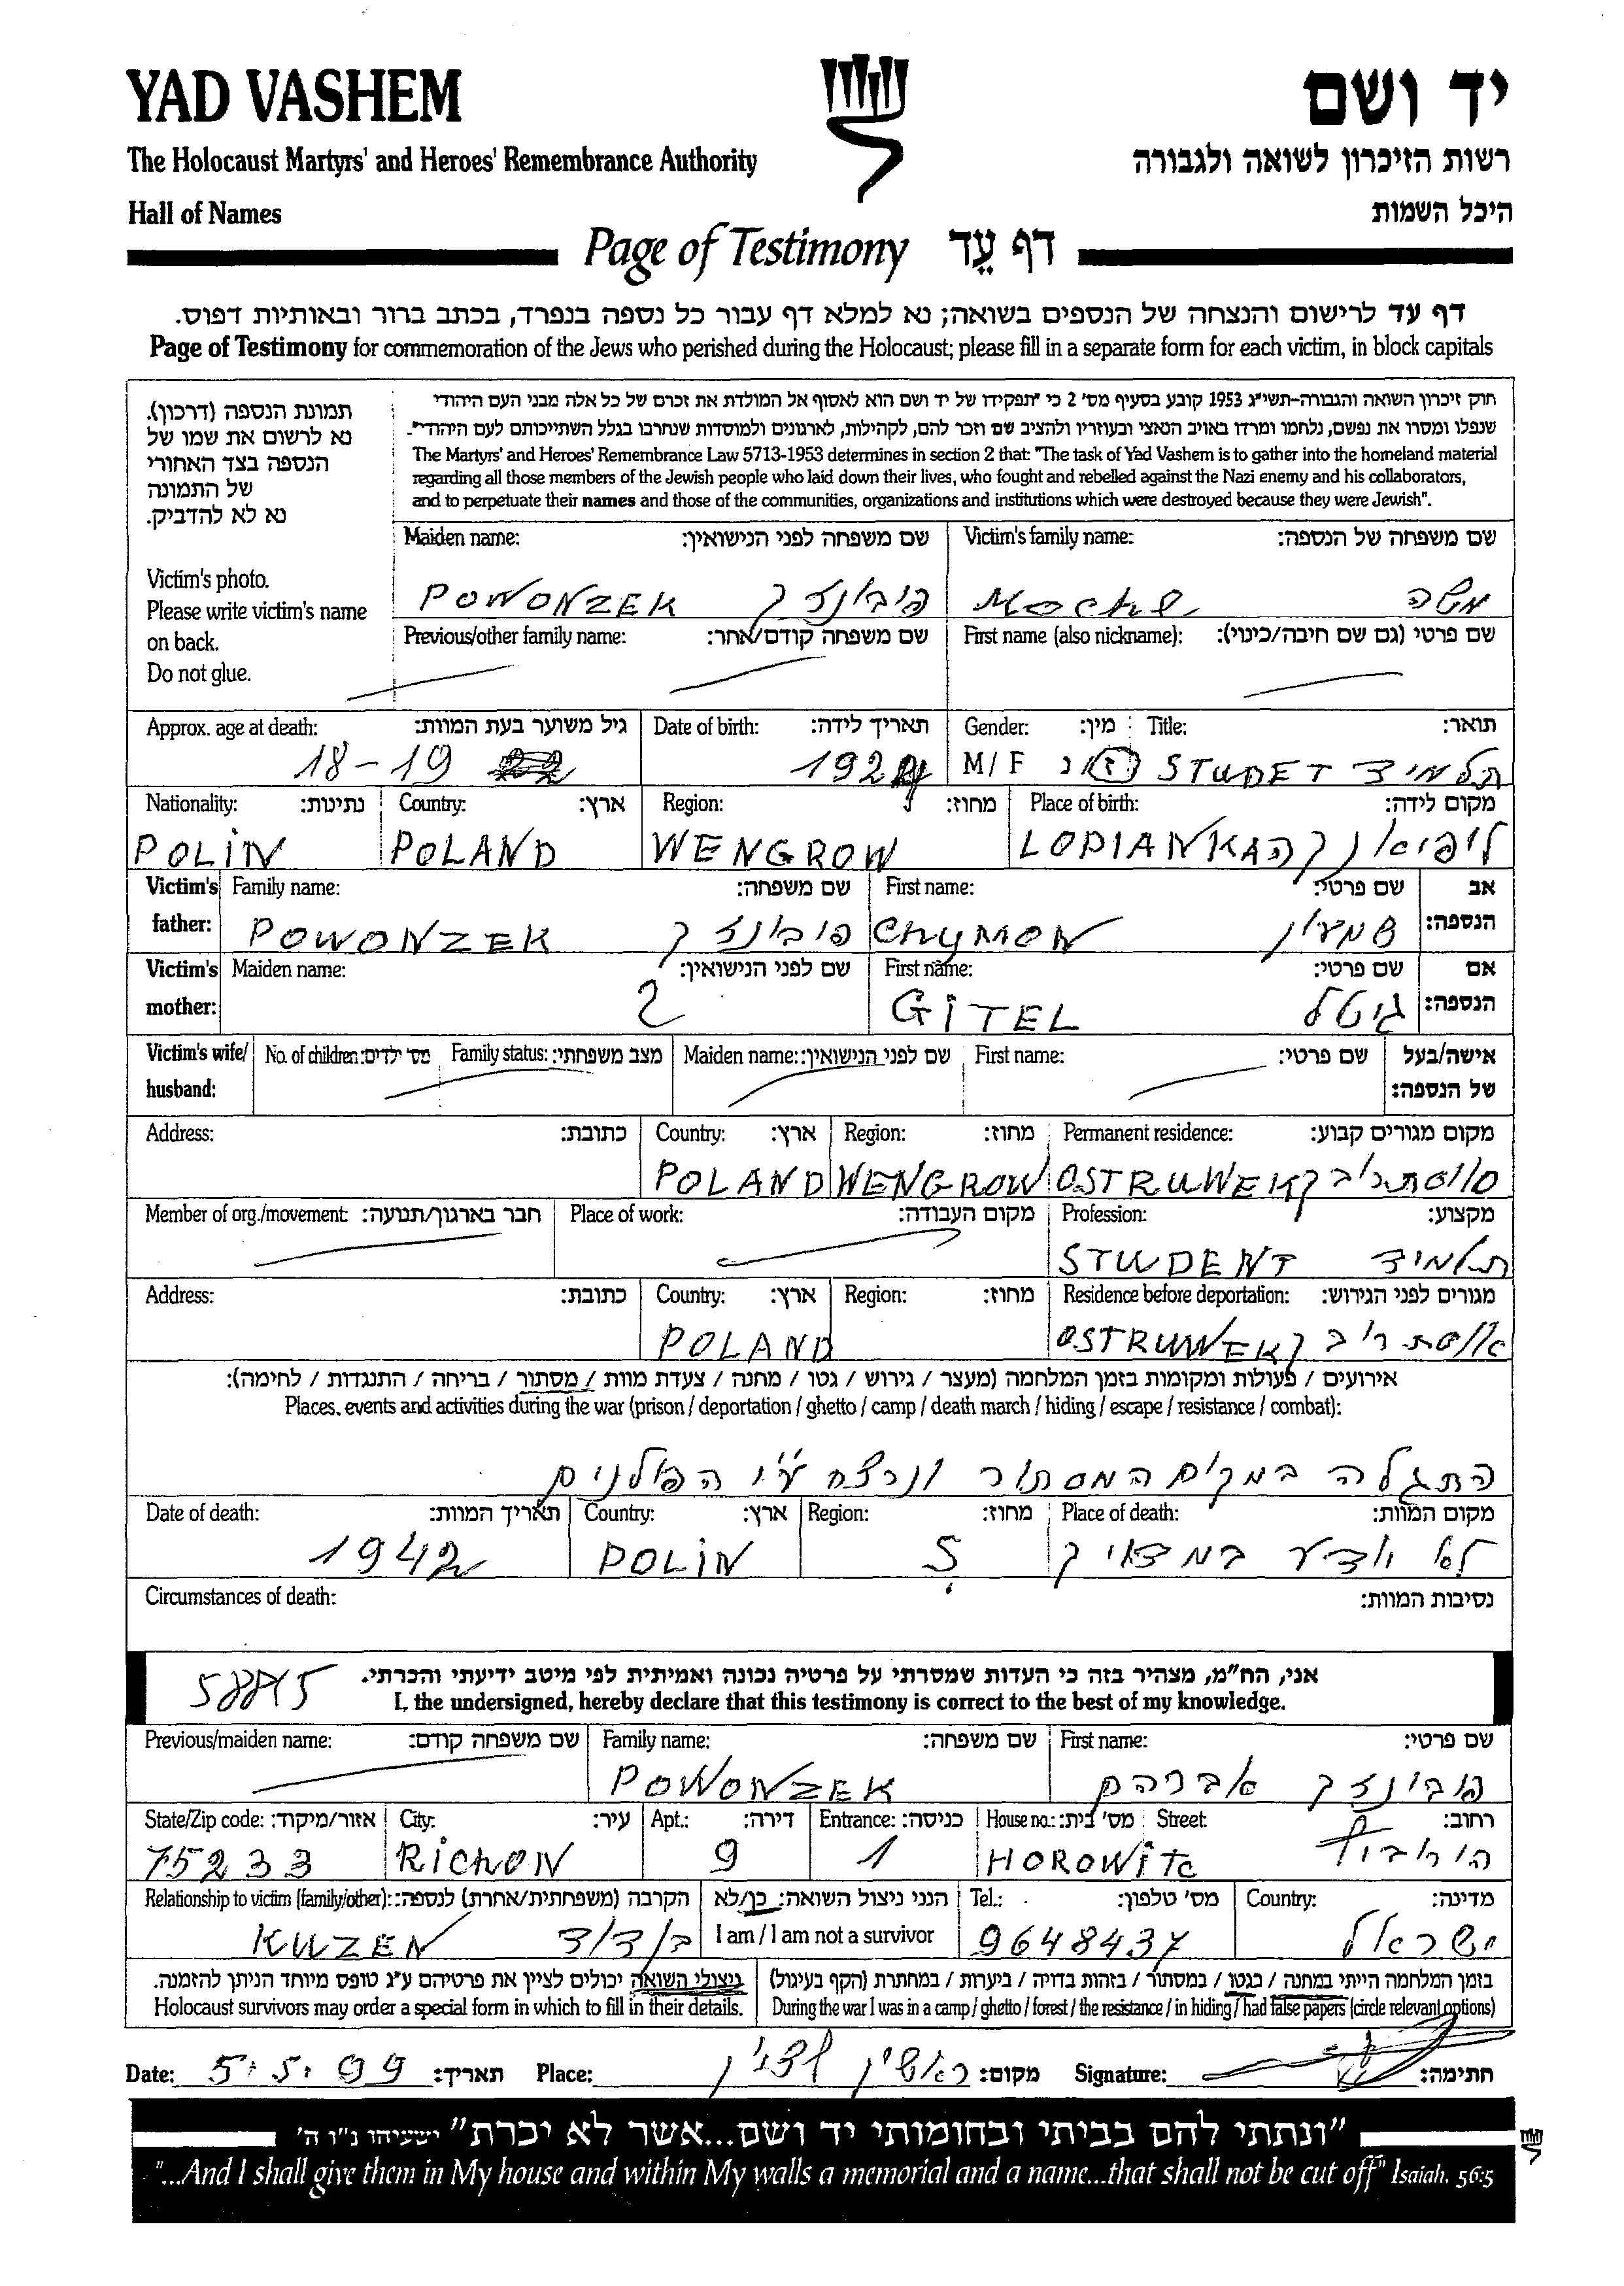 YAD VASHEM
יד ושם
The Holocaust Martyrs' and Heroes' Remembrance Authority
רשות הזיכרון לשואה ולגבורה
Hall of Names
היכל השמות
Page of Testimony דף עֵד
דף עד לרישום והנצחה של הנספים בשואה; נא למלא דף עבור כל נספה בנפרד, בכתב ברור ובאותיות דפוס.
Page of Testimony for commemoration of the Jews who perished during the Holocaust; please fill in a separate form for each victim, in block capitals
תמונת הנספה (דרכון).
נא לרשום את שמו של
הנספה בצד האחורי
של התמונה
נא לא להדביק.
Victim's photo.
Please write victim's name
on back.
Do not glue.
חוק זיכרון השואה והגבורה-תשי"ג 1953 קובע בסעיף מס' 2 כי "תפקידו של יד ושם הוא לאסוף אל המולדת את זכרם של כל אלה מבני העם היהודי
שנפלו ומסרו את נפשם, נלחמו ומרדו באויב הנאצי ובעוזריו ולהציב שם וזכר להם, לקהילות, לארגונים ולמוסדות שנחרבו בגלל השתייכותם לעם היהודי".
The Martyrs' and Heroes' Remembrance Law 5713-1953 determines in section 2 that: "The task of Yad Vashem is to gather into the homeland material
regarding all those members of the Jewish people who laid down their lives, who fought and rebelled against the Nazi enemy and his collaborators,
and to perpetuate their names and those of the communities, organizations and institutions which were destroyed because they were Jewish".
Maiden name: שם משפחה לפני הנישואין: Victim's family name: שם משפחה של הנספה:
POWONZEK פובונזק Moche משה
Previous/other family name: שם משפחה קודם/אחר: First name (also nickname): שם פרטי (גם שם חיבה/כינוי):
Approx. age at death: גיל משוער בעת המוות: Date of birth: תאריך לידה: Gender: מין: Title: תואר:
18-19 192 M/F ז/נ STUDET תלמיד
Nationality: נתינות: Country: ארץ: Region: מחוז: Place of birth: מקום לידה:
POLIN POLAND WENGROW LOPIANKA לופיאנקה
Victim's father: Family name: שם משפחה: First name: שם פרטי: אב הנספה:
POWONZEK פובונזק CHYMON שמעון
Victim's mother: Maiden name: שם לפני הנישואין: First name: שם פרטי: אם הנספה:
? GITEL גיטל
Victim's wife/ husband: No. of children: מס' ילדים: Family status: מצב משפחתי: Maiden name: שם לפני הנישואין: First name: שם פרטי: אישה/בעל של הנספה:
Address: כתובת: Country: ארץ: Region: מחוז: Permanent residence: מקום מגורים קבוע:
POLAND WENGROW OSTRUWEK
Member of org./movement: חבר בארגון/תנועה: Place of work: מקום העבודה: Profession: מקצוע:
STUDENT תלמיד
Address: כתובת: Country: ארץ: Region: מחוז: Residence before deportation: מגורים לפני הגירוש:
POLAND OSTRUWEK
אירועים / פעולות ומקומות בזמן המלחמה (מעצר / גירוש / גטו / מחנה / צעדת מוות / מסתור / בריחה / התנגדות / לחימה):
Places, events and activities during the war (prison / deportation / ghetto / camp / death march / hiding / escape / resistance / combat):
התגלה במקום המסתור ונרצח ע"י הפולנים
Date of death: תאריך המוות: Country: ארץ: Region: מחוז: Place of death: מקום המוות:
1942 POLIN ? לא יודע במדויק
Circumstances of death: נסיבות המוות:
אני, הח"מ, מצהיר בזה כי העדות שמסרתי על פרטיה נכונה ואמיתית לפי מיטב ידיעתי והכרתי.
I, the undersigned, hereby declare that this testimony is correct to the best of my knowledge.
Previous/maiden name: שם משפחה קודם: Family name: שם משפחה: First name: שם פרטי:
POWONZEK פובונזק אברהם
State/Zip code: אזור/מיקוד: City: עיר: Apt.: דירה: Entrance: כניסה: House no.: מס' בית: Street: רחוב:
75233 RICHON 9 1 HOROWITC הורוביץ
Relationship to victim (family/other): הקרבה (משפחתית/אחרת) לנספה: הנני ניצול השואה: כן/לא Tel.: מס' טלפון: Country: מדינה:
KUZEN בן/דוד I am / I am not a survivor 9648437 ישראל
ניצולי השואה יכולים לציין את פרטיהם ע"ג טופס מיוחד הניתן להזמנה.
Holocaust survivors may order a special form in which to fill in their details.
בזמן המלחמה הייתי במחנה / בגטו / במסתור / בזהות בדויה / ביערות / במחתרת (הקף בעיגול)
During the war I was in a camp / ghetto / forest / the resistance / in hiding / had false papers (circle relevant options)
Date: 5.5.99 תאריך: Place: ראשון לציון מקום: Signature: חתימה:
"ונתתי להם בביתי ובחומותי יד ושם...אשר לא יכרת" ישעיהו נ"ו ה'
"...And I shall give them in My house and within My walls a memorial and a name...that shall not be cut off" Isaiah, 56:5